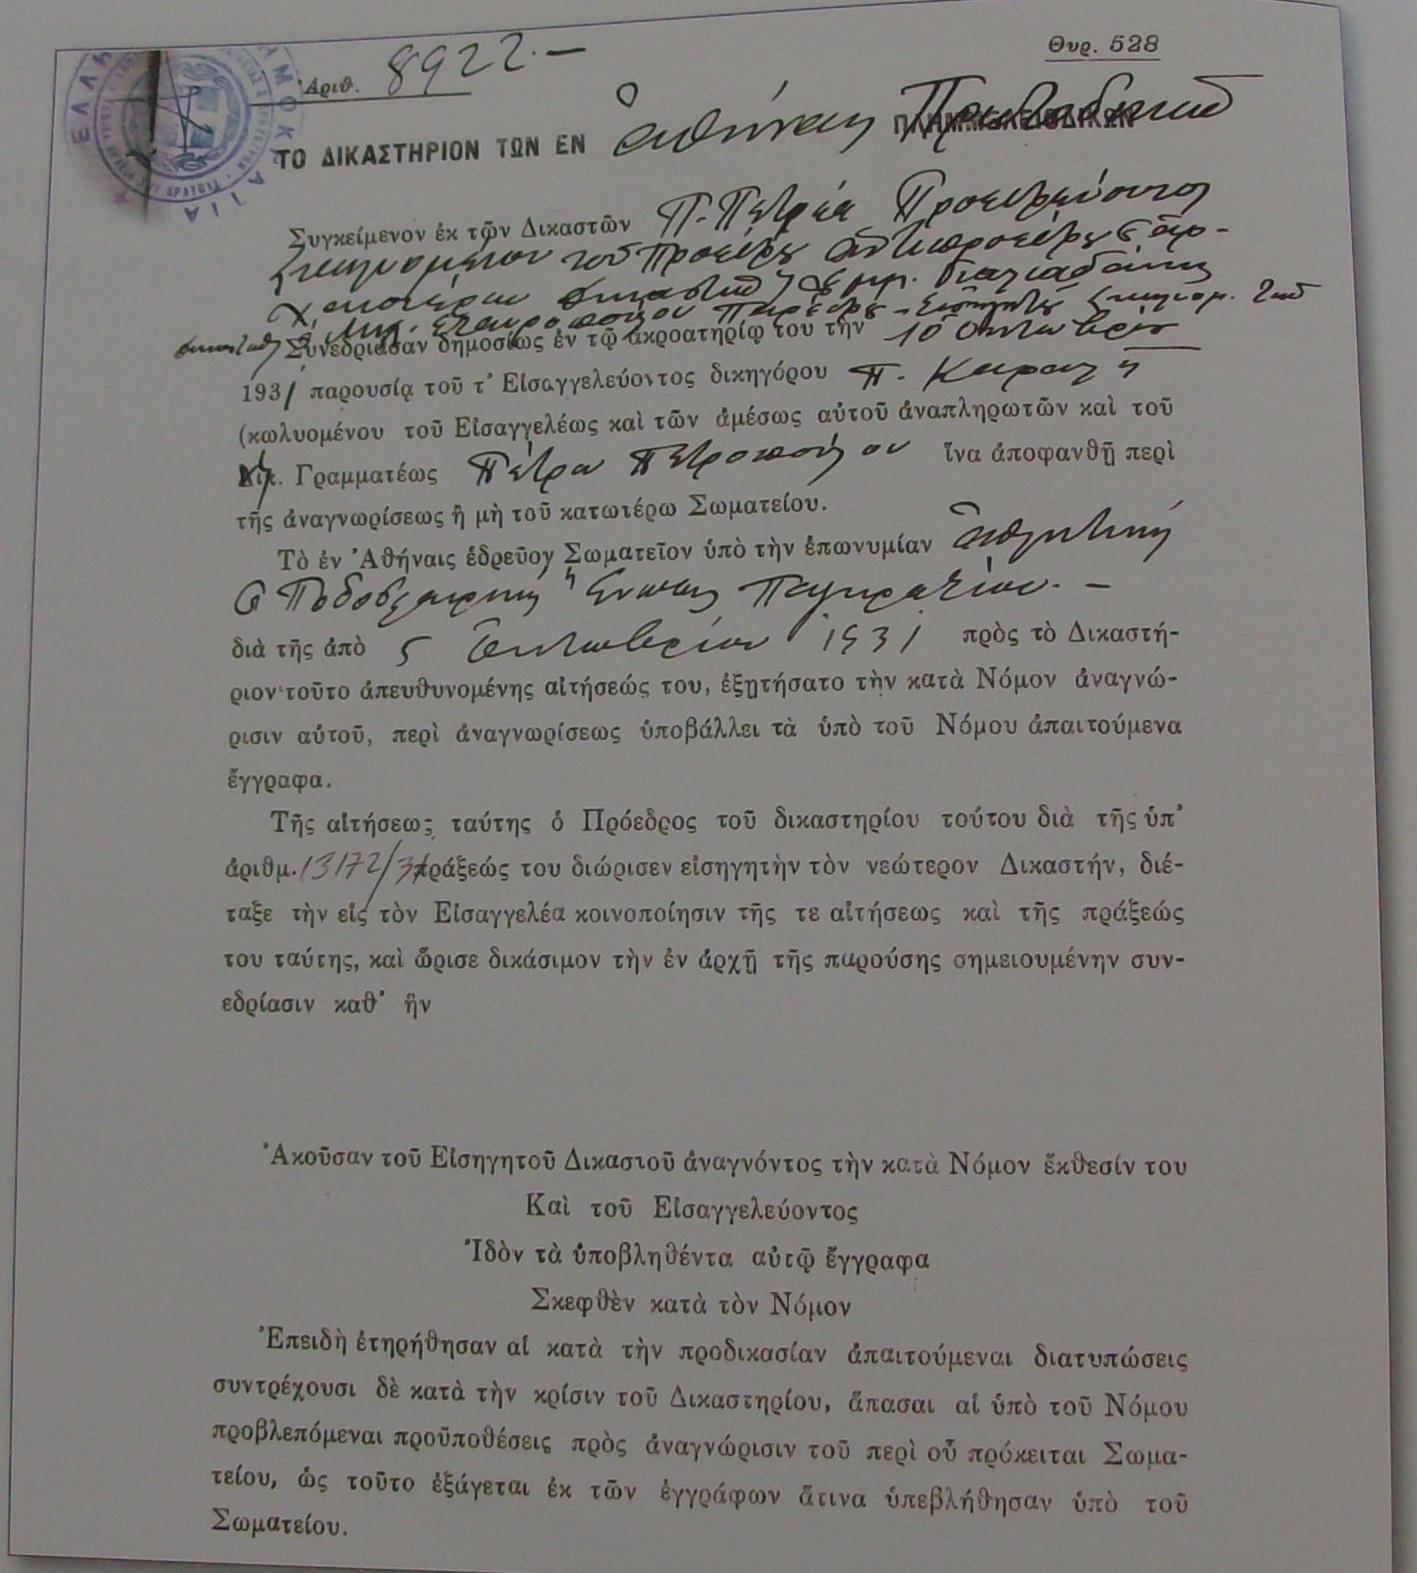 Ἀριθ. 8922.—
Θυρ. 528
ΤΟ ΔΙΚΑΣΤΗΡΙΟΝ ΤΩΝ ΕΝ Ἀθήναις Πρωτοδικῶν
Συγκείμενον ἐκ τῶν Δικαστῶν Π. Πετρέα Προεδρεύοντος
κωλυομένου τοῦ Προέδρου
Συνεδριᾶσαν δημοσίως ἐν τῷ ἀκροατηρίῳ του τὴν 10 Ὀκτωβρίου
1931 παρουσίᾳ τοῦ τ' Εἰσαγγελεύοντος δικηγόρου Π.
(κωλυομένου τοῦ Εἰσαγγελέως καὶ τῶν ἀμέσως αὐτοῦ ἀναπληρωτῶν καὶ τοῦ
Γραμματέως Πέτρου Πετροπούλου ἵνα ἀποφανθῇ περὶ
τῆς ἀναγνωρίσεως ἢ μὴ τοῦ κατωτέρω Σωματείου.
Τὸ ἐν Ἀθήναις ἑδρεῦον Σωματεῖον ὑπὸ τὴν ἐπωνυμίαν Ἀθλητικὴ
Ποδοσφαιρικὴ Ἕνωσις Παγκρατίου. —
διὰ τῆς ἀπὸ 5 Ὀκτωβρίου 1931 πρὸς τὸ Δικαστή-
ριον τοῦτο ἀπευθυνομένης αἰτήσεώς του, ἐξῃτήσατο τὴν κατὰ Νόμον ἀναγνώ-
ρισιν αὐτοῦ, περὶ ἀναγνωρίσεως ὑποβάλλει τὰ ὑπὸ τοῦ Νόμου ἀπαιτούμενα
ἔγγραφα.
Τῆς αἰτήσεως ταύτης ὁ Πρόεδρος τοῦ δικαστηρίου τούτου διὰ τῆς ὑπ'
ἀριθμ. 13172/31 πράξεώς του διώρισεν εἰσηγητὴν τὸν νεώτερον Δικαστήν, διέ-
ταξε τὴν εἰς τὸν Εἰσαγγελέα κοινοποίησιν τῆς τε αἰτήσεως καὶ τῆς πράξεώς
του ταύτης, καὶ ὥρισε δικάσιμον τὴν ἐν ἀρχῇ τῆς παρούσης σημειουμένην συν-
εδρίασιν καθ' ἣν
Ἀκοῦσαν τοῦ Εἰσηγητοῦ Δικαστοῦ ἀναγνόντος τὴν κατὰ Νόμον ἔκθεσίν του
Καὶ τοῦ Εἰσαγγελεύοντος
Ἰδὸν τὰ ὑποβληθέντα αὐτῷ ἔγγραφα
Σκεφθὲν κατὰ τὸν Νόμον
Ἐπειδὴ ἐτηρήθησαν αἱ κατὰ τὴν προδικασίαν ἀπαιτούμεναι διατυπώσεις
συντρέχουσι δὲ κατὰ τὴν κρίσιν τοῦ Δικαστηρίου, ἅπασαι αἱ ὑπὸ τοῦ Νόμου
προβλεπόμεναι προϋποθέσεις πρὸς ἀναγνώρισιν τοῦ περὶ οὗ πρόκειται Σωμα-
τείου, ὡς τοῦτο ἐξάγεται ἐκ τῶν ἐγγράφων ἅτινα ὑπεβλήθησαν ὑπὸ τοῦ
Σωματείου.